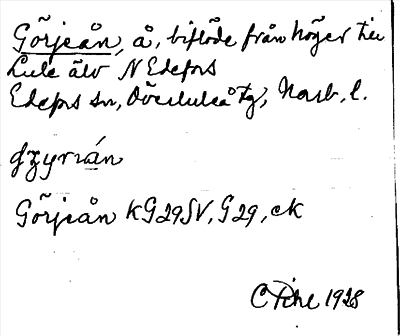 Görjeån, å, biflöde från höger till
Lule älv N Edefors
Edefors sn, Överluleå tg, Norrb. l.
Görjeån KG29SV, G29, ck
1928